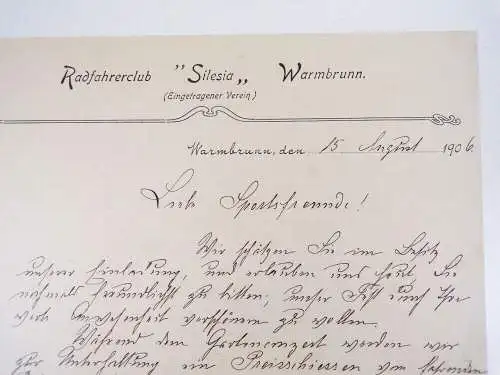 Radfahrerclub "Silesia„ Warmbrunn.
(Eingetragener Verein)
Warmbrunn, den 15 August 1906.
Lieb Sportsfreunde!
Wir schätzen Sie im Besitz
unserer Einladung, und erlauben uns heut, Sie
nochmals freundlichst zu bitten, unser Fest durch Ihre
werte Anwesenheit verschönern zu wollen.
Während dem Gartenconzert werden wir
zur Unterhaltung ein Preisschiessen vom fahrenden